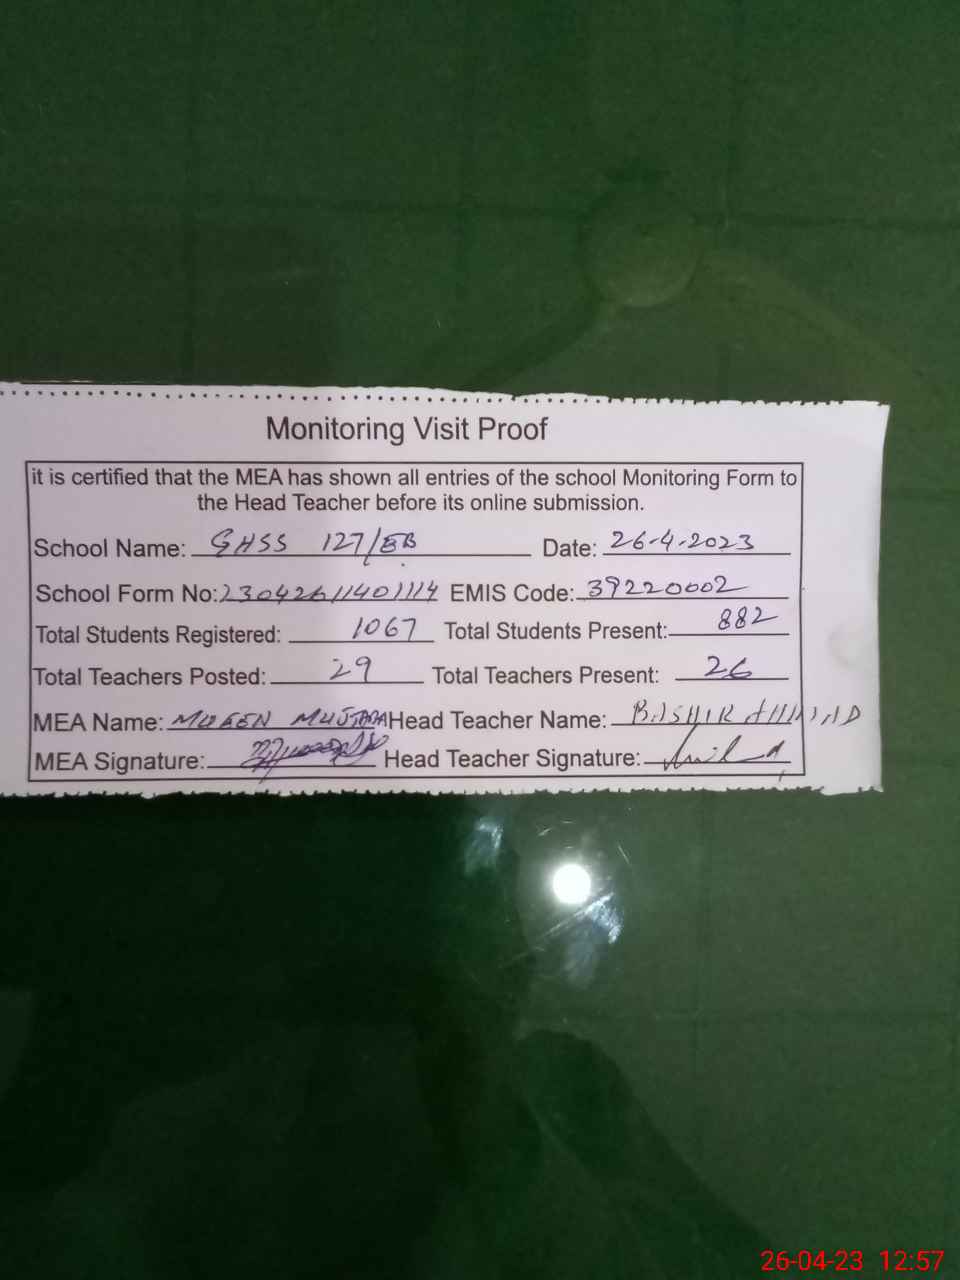 Monitoring Visit Proof
it is certified that the MEA has shown all entries of the school Monitoring Form to
the Head Teacher before its online submission.
School Name: GHSS 127/EB Date: 26-4-2023
School Form No: 23042611401114 EMIS Code: 39220002
Total Students Registered: 1067 Total Students Present: 882
Total Teachers Posted: 29 Total Teachers Present: 26
MEA Name: MUSTAFA Head Teacher Name: BASHIR AHMAD
MEA Signature: Head Teacher Signature:
26-04-23 12:57